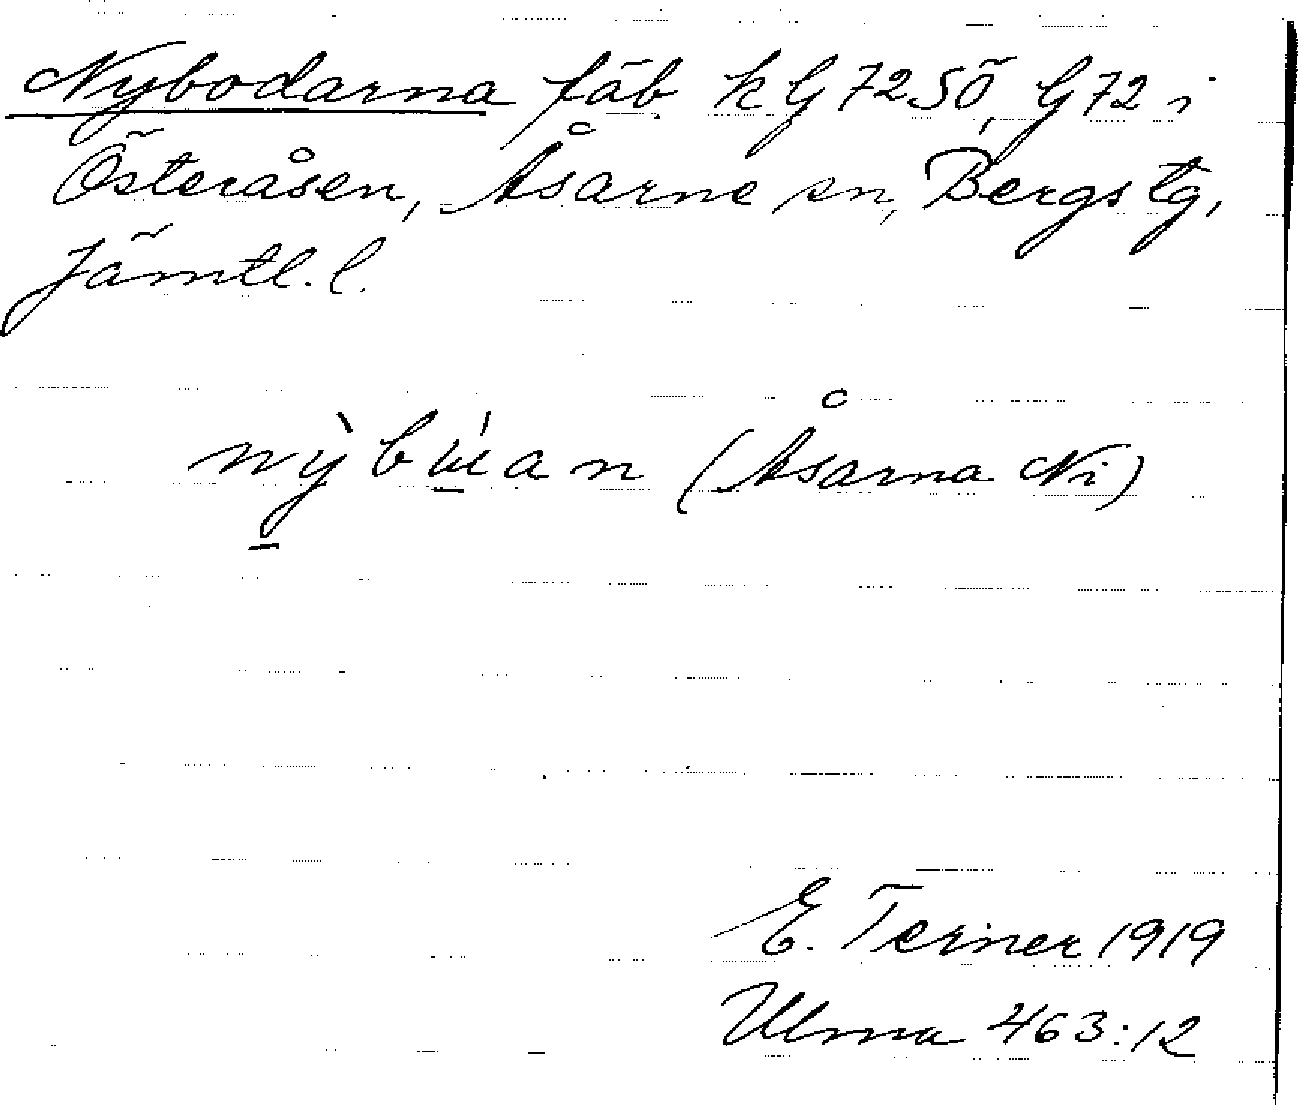 Nybodarna fäb. k G 72 SÖ, G 72 i
Österåsen, Åsarne sn, Bergs tg,
Jämtl. l.
(Åsarna Ni)
E. Terner 1919
Ulma 463:12